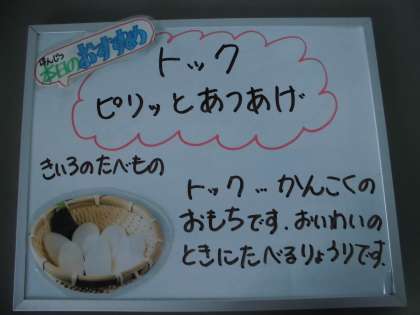 ほんじつ
本日のおすすめ
トック
ピリッとあつあげ
きいろのたべもの
トック…かんこくの
おもちです。おいわいの
ときにたべるりょうりです。